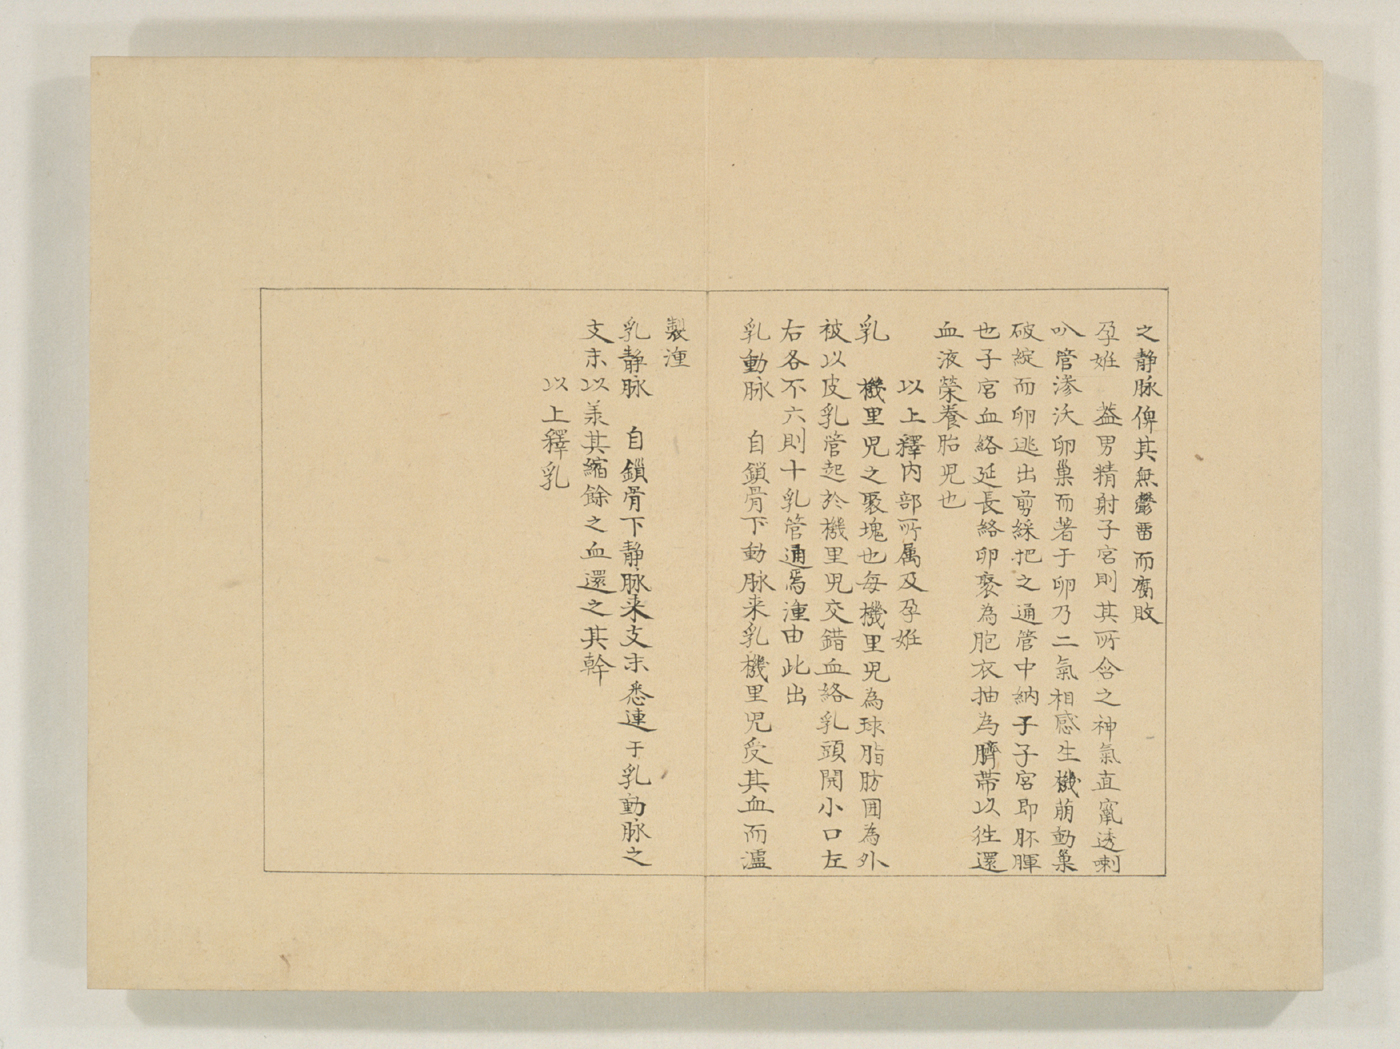 之静脉俾其無鬱畱而腐敗
孕姙　葢男精射子宮則其所含之神氣直竄透喇
叭管滲沃卵巢而著于卵乃二氣相感生機萠動巢
破綻而卵逃出剪綵把之通管中納子子宮即胚腪
也子宮血絡延長絡卵褎為胞衣抽為臍帯以徃還
血液榮養胎児也
以上釋内部所属及孕姙
乳　機里児之聚塊也每機里児為球脂肪囲為外
被以皮乳管起於機里児交錯血絡乳頭開小口左
右各不六則十乳管通焉湩由此出
乳動脉　自鎖骨下動脉来乳機里児受其血而瀘
製湩
乳静脉　自鎖骨下静脉来支末悉連于乳動脉之
支末以羕其縮餘之血還之其幹
以上釋乳